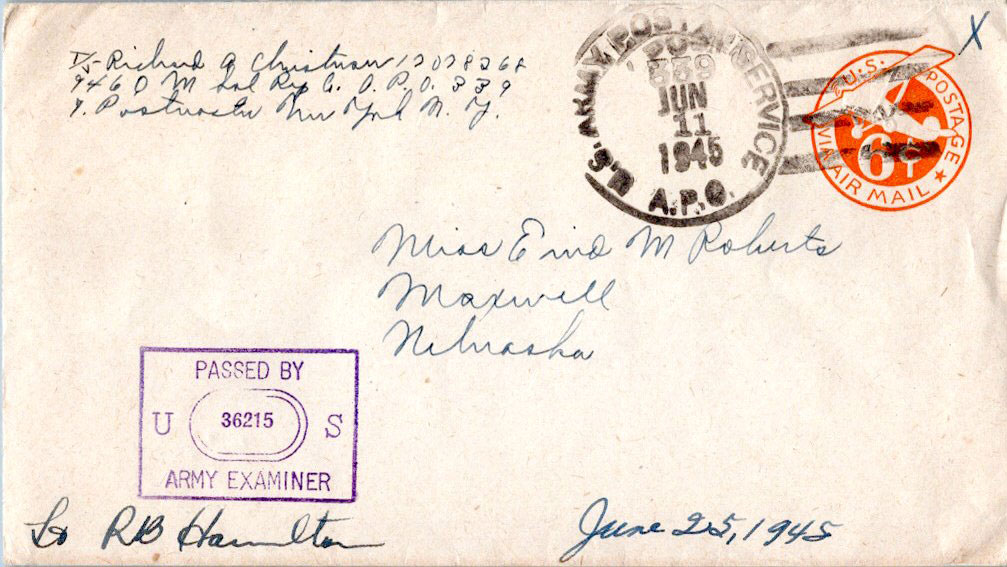 T/5 Richard A Christman
3460 Q M Sal Rep Co. A. P. O. 339
% Postmaster New York N. Y.
U.S. ARMY POSTAL SERVICE
339
JUN
11
1945
A.P.O.
X
U.S. POSTAGE
6¢
VIA AIR MAIL
Miss Enid M Roberts
Maxwell
Nebraska
PASSED BY
U 36215 S
ARMY EXAMINER
Lt RB Hamilton
June 25, 1945